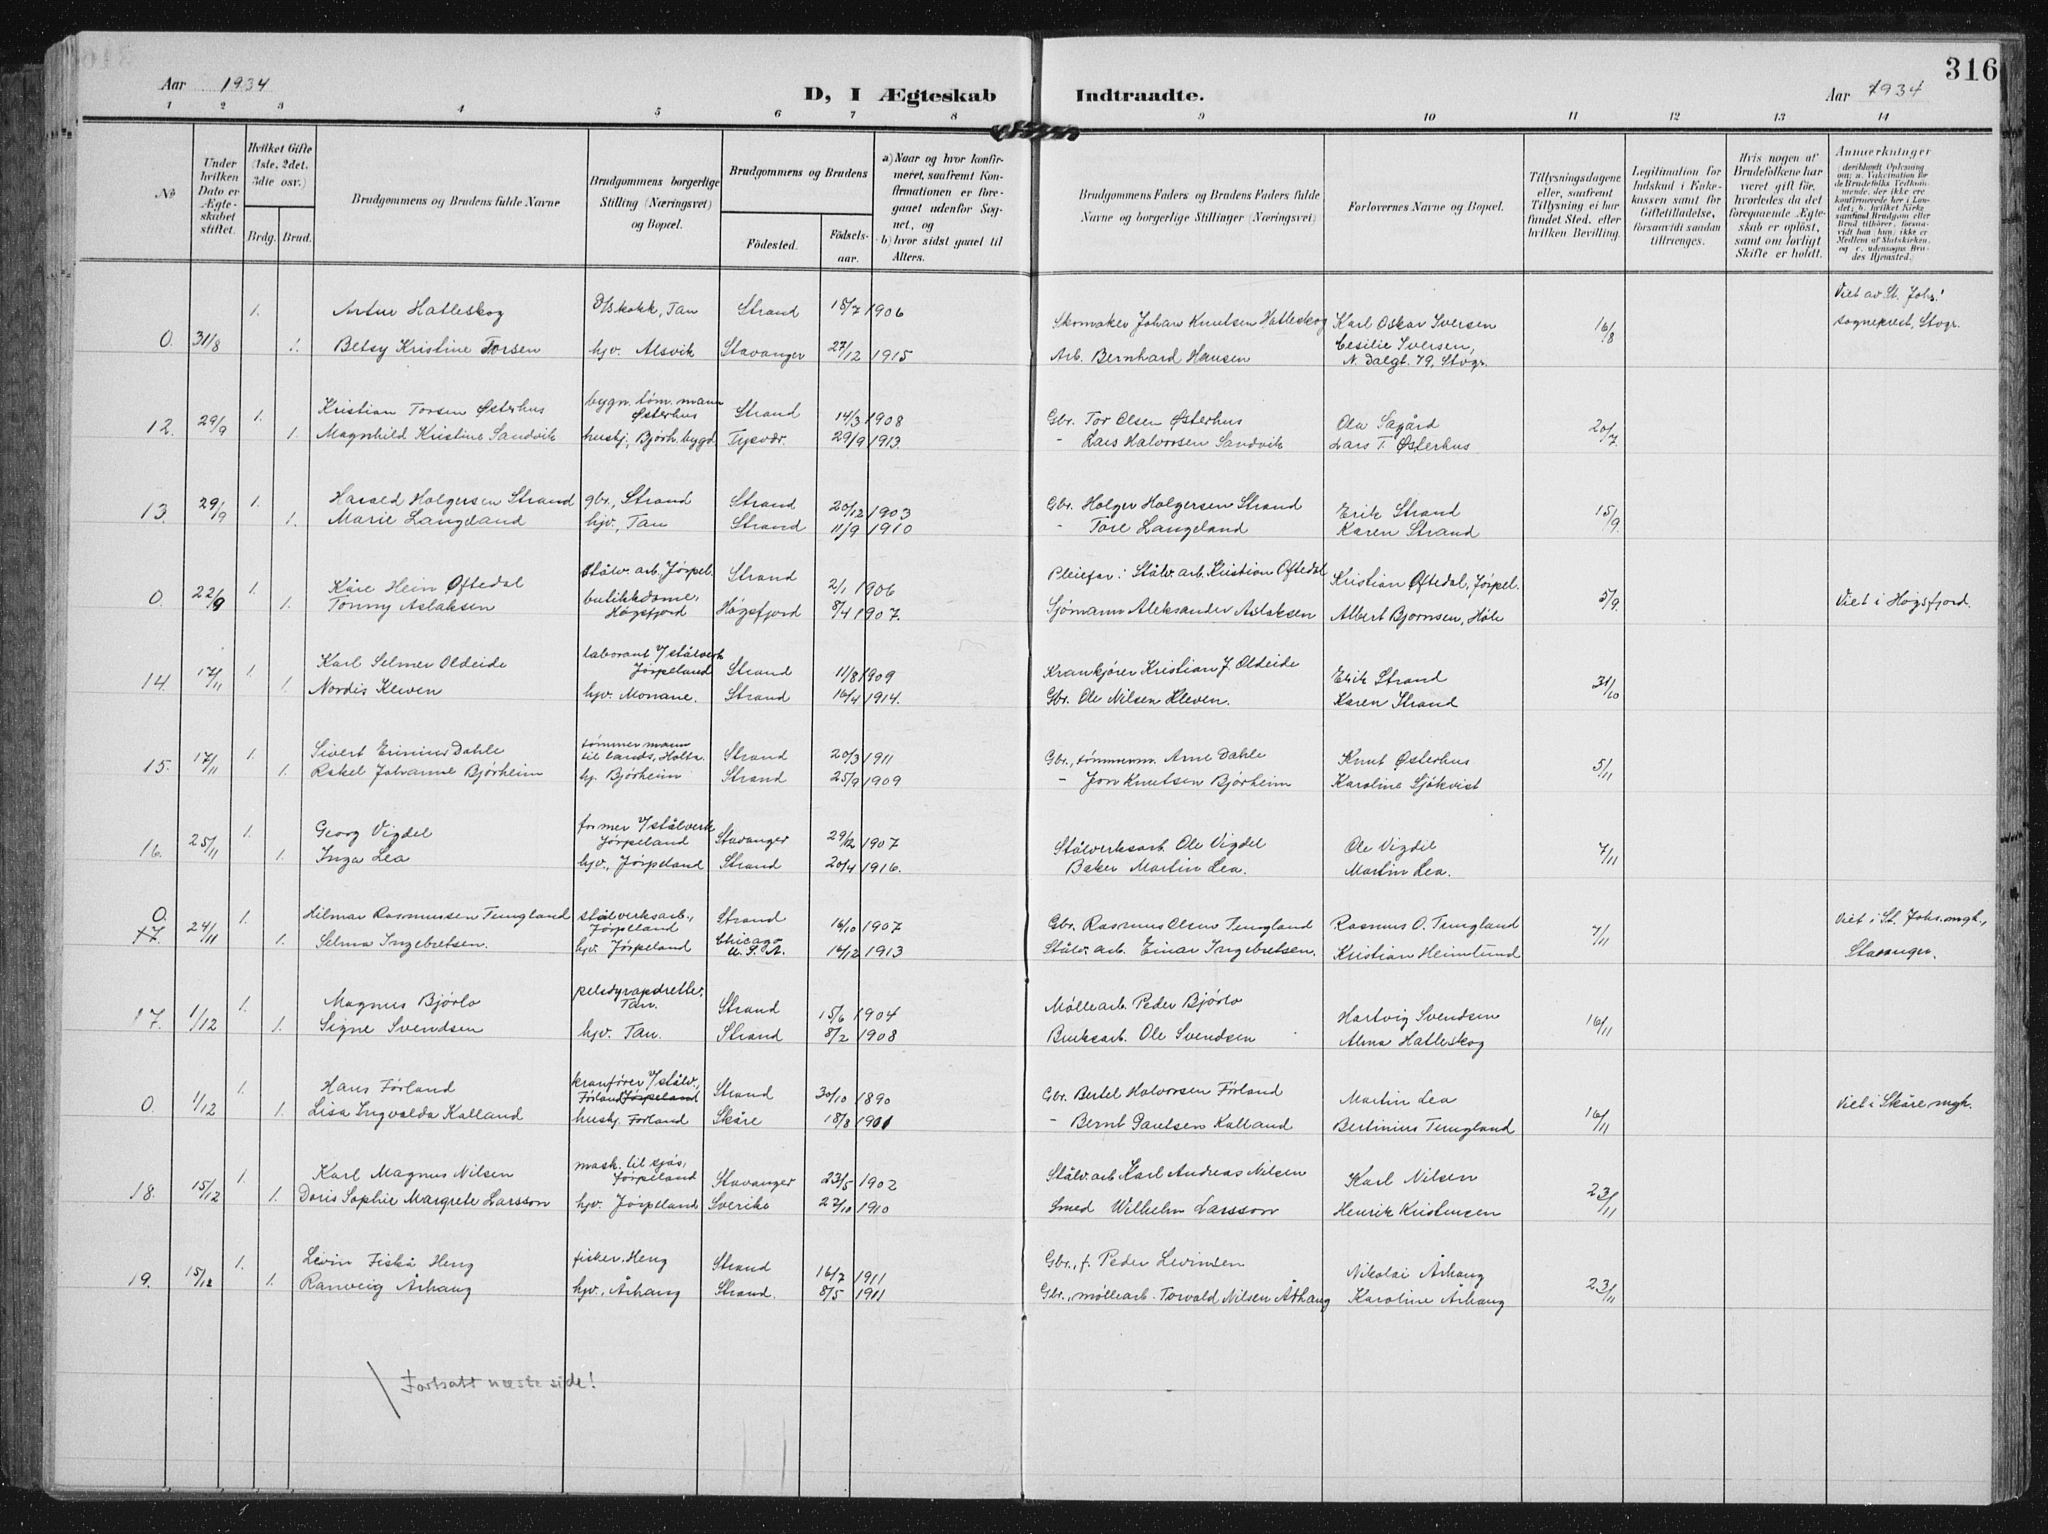 316
Aar 1934
D, I Ægteskab Indtraadte.
Aar 1934
1 2 3 4 5 6 7 8 9 10 11 12 13 14
№
Under hvilken Dato er Ægteskabet stiftet.
Hvilket Gifte (1ste, 2det, 3dte osv.)
Brdg. Brud.
Brudgommens og Brudens fulde Navne
Brudgommens borgerlige Stilling (Næringsvei) og Bopæl.
Brudgommens og Brudens
Födested.
Födsels-aar.
a) Naar og hvor konfirmeret, saafremt Konfirmationen er foregaaet udenfor Sognet, og
b) hvor sidst gaaet til Alters.
Brudgommens Faders og Brudens Faders fulde Navne og borgerlige Stillinger (Næringsvei)
Forlovernes Navne og Bopæl.
Tillysningsdagene eller, saafremt Tillysning ei har fundet Sted, efter hvilken Bevilling.
Legitimation for Indskud i Enkekassen samt for Giftetilladelse, forsaavidt saadan tiltrænges.
Hvis nogen af Brudefolkene har været gift för, hvorledes da det foregaaende Ægteskab er oplöst, samt om lovligt Skifte er holdt.
Anmerkninger
(deriblandt Oplysning om: a. Vaccination for de Brudefolks Vedkommende, der ikke ere konfirmerede her i Landet; b. hvilket Kirkesamfund Brudgom eller Brud tilhörer, forsaavidt han/hun ikke er Medlem af Statskirken, og c. udensogns Brudes Hjemsted.)
1. Artur Hatleskog D/Skokk, Tau Strand 15/7 1906 Skomaker Johan Knutsen Hatleskog Karl Oskar Iversen 16/8 Viet av St. Johs.'
0. 31/8 1. Betsy Kristine Torsen hjv. Alsvik Stavanger 27/12 1915 Arb. Bernhard Hansen Cesilie Iversen, N. Dalgt. 79, Stvgr. sogneprest, Stvgr.
12. 29/9 1. Kristian Torsen Østerhus bygn. tøm. mann Østerhus Strand 14/3 1908 Gbr. Tor Olsen Østerhus Ola Sagård 20/7.
1. Magnhild Kristine Sandvik hushj, Bjørh.bygd Tysvær 29/9 1913. - Lars Halvorsen Sandvik Lars T. Østerhus
13. 29/9 1. Harald Holgersen Strand gbr., Strand Strand 20/12 1903 Gbr. Holger Holgersen Strand Erik Strand 15/9.
1. Marie Langeland hjv., Tau Strand 11/9 1910 - Tore Langeland Karen Strand
0. 22/9 1. Kåre Hein Oftedal Stålv. arb. Jørpel. Strand 2/1 1906 Pleiefar: Stålv. arb. Kristian Oftedal Kristian Oftedal, Jørpel. 5/9.
1. Tonny Aslaksen butikkdame, Høgsfjord Høgsfjord 8/4 1907. Sjømann Aleksander Aslaksen Albert Bjørnsen, Høle Viet i Høgsfjord.
14. 17/11 1. Karl Selmer Oldeide laborant v/stålverk Jørpeland Strand 11/8 1909 Krankjører Kristian J. Oldeide Erik Strand 31/10
1. Nordis Kleven hjv. Monane. Strand 16/4 1914. Gbr. Ole Nilsen Kleven. Karen Strand
15. 17/11 1. Sivert Erinius Dahle tømmermann til lands, Holta Strand 20/3 1911 Gbr., tømmerm. Arne Dahle Knut Østerhus 5/11
1. Rakel Johanne Bjørheim hj. Bjørheim Strand 25/9 1909 - Jon Knutsen Bjørheim Karoline Sjøkvist
16. 25/11 1. Georg Vigdel former v/stålverk Jørpeland Stavanger 29/12 1907 Stålverksarb. Ole Vigdel Ole Vigdil 7/11
1. Inga Lea hjv., Jørpeland Strand 20/4 1916. Baker Martin Lea. Martin Lea.
0. 17. 24/11 1. Hilmar Rasmussen Tungland stålverksarb., Jørpeland Strand 16/10 1907 Gbr. Rasmus Olsen Tungland Rasmus O. Tungland 7/11 Viet i St. Johs. mgh.,
1. Selma Ingebretsen. hjv. Jørpeland Chicago U.S.A. 16/12 1913 Stålv. arb. Einar Ingebretsen. Kristian Heimlund Stavanger.
17. 1/12 1. Magnus Bjørlo pelsdyropdretter, Tau. Strand 15/6 1904 Møllearb. Peder Bjørlo Hartvig Svendsen 16/11
1. Signe Svendsen hjv. Tau. Strand 8/2 1908 Bruksarb. Ole Svendsen Alma Hatleskog
0. 1/12 1. Hans Førland kranfører v/stålv., Førland Jørpeland Strand 30/10 1890 Gbr. Bertel Halvorsen Førland Martin Lea Viet i Skåre mgh.
1. Lisa Ingvalda Kalland hushj. Førland Skåre 18/8 1901 - Bernt Paulsen Kalland Bertinius Tungland 16/11
18. 15/12 1. Karl Magnus Nilsen mask. til sjøs, Jørpeland Stavanger 23/5 1902 Stålv. arb Karl Andreas Nilsen Karl Nilsen 23/11
1. Doris Sophie Margrete Larsson hjv. Jørpeland Sverike 27/10 1910 Smed Wilhelm Larsson Henrik Kristensen
19. 15/12 1. Levin Fiskå Heng fisker, Heng Strand 16/7 1911 Gbr., f. Peder Levinsen Nikolai Århaug 23/11
1. Ranveig Århaug hjv., Århaug Strand. 8/5 1911 Gbr., møllearb. Torvald Nilsen Århaug Karoline Århaug
Fortsatt næste side!